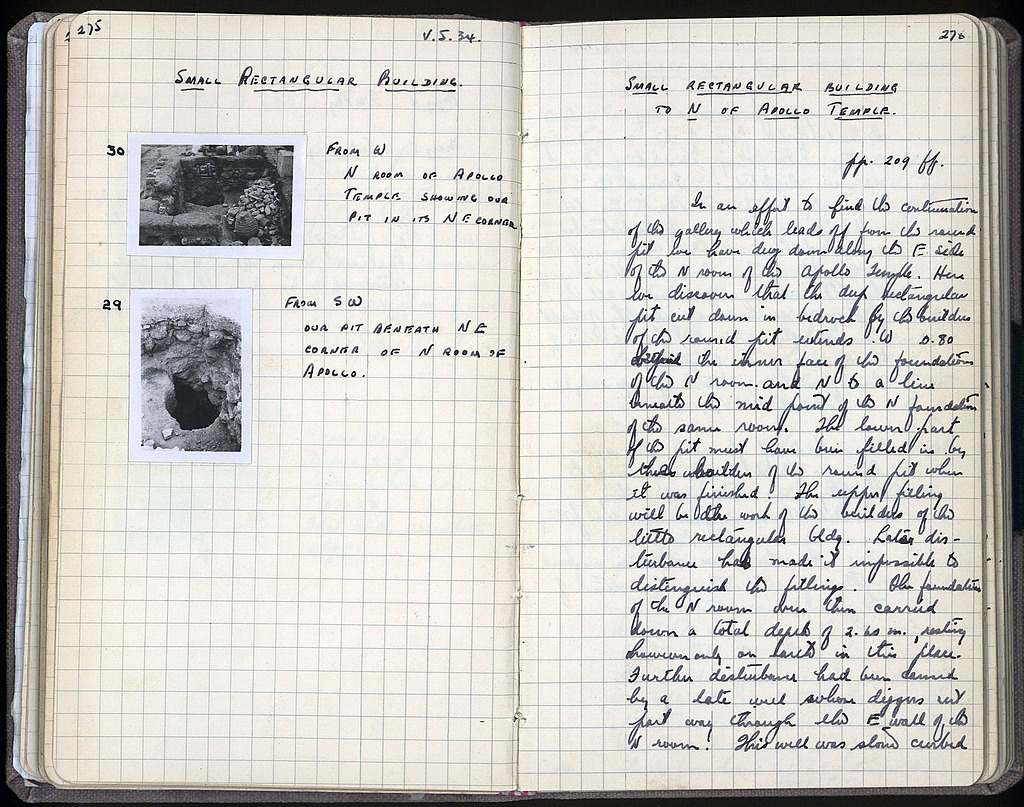 275
V.5.34.
SMALL RECTANGULAR BUILDING.
30
FROM W
N ROOM OF APOLLO
TEMPLE SHOWING OUR
PIT IN ITS NE CORNER
29
FROM SW
OUR PIT BENEATH NE
CORNER OF N ROOM OF
APOLLO.
276
SMALL RECTANGULAR BUILDING
TO N OF APOLLO TEMPLE.
pp. 209 ff.
In an effort to find the continuation
of the gallery which leads off from the round
pit we have dug down along the E side
of the N room of the Apollo Temple. Here
we discover that the deep rectangular
pit cut down in bedrock by the builders
of the round pit extends W 0.80
the inner face of the foundations
of the N room and N to a line
beneath the mid point of the N foundation
of the same room. The lower part
of the pit must have been filled in by
the builders of the round pit when
it was finished. The upper filling
will be the work of the builders of the
little rectangular bldg. Later dis-
turbance has made it impossible to
distinguish the fillings. The foundations
of the N room were then carried
down a total depth of 2.60 m., resting
however only on earth in this place.
Further disturbance had been caused
by a late well whose diggers cut
part way through the E wall of the
N room. This well was stone curbed